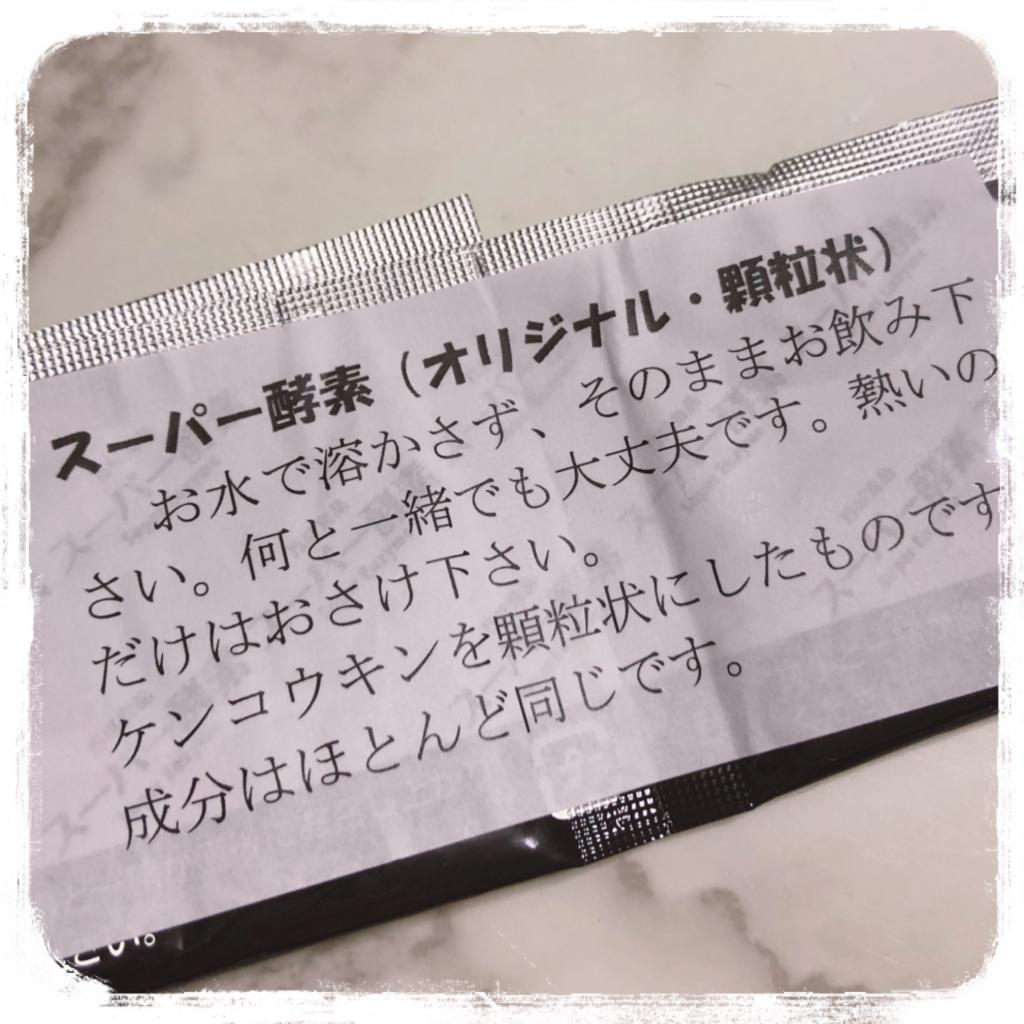 スーパー酵素（オリジナル・顆粒状）
お水で溶かさず、そのままお飲み下
さい。何と一緒でも大丈夫です。熱いの
だけはおさけ下さい。
ケンコウキンを顆粒状にしたものです
成分はほとんど同じです。
さい。